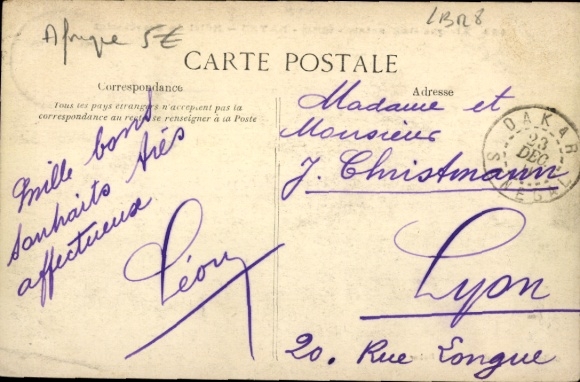 Afrique 5€
LBR8
CARTE POSTALE
Correspondance
Tous les pays étrangers n'acceptent pas la
correspondance au recto se renseigner à la Poste
Mille bons
souhaits très
affectueux
Léon
Adresse
Madame et
Monsieur
J. Christmann
Lyon
20. Rue Longue
DAKAR
23
DEC
SENEGAL